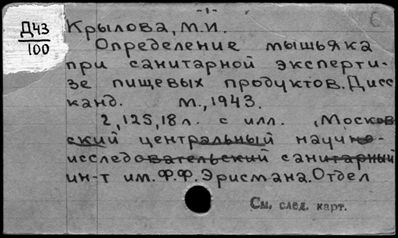 -1-
Д43
100
Крылова, М.И.
Определение мышьяка
при санитарной эксперти-
зе пищевых продуктов. Дисс.
канд. М., 1943.
2, 125, 18 л. с илл. (Москов-
ский центральный научно-
исследовательский санитарный
ин-т им. Ф.Ф. Эрисмана. Отдел
См. след. карт.